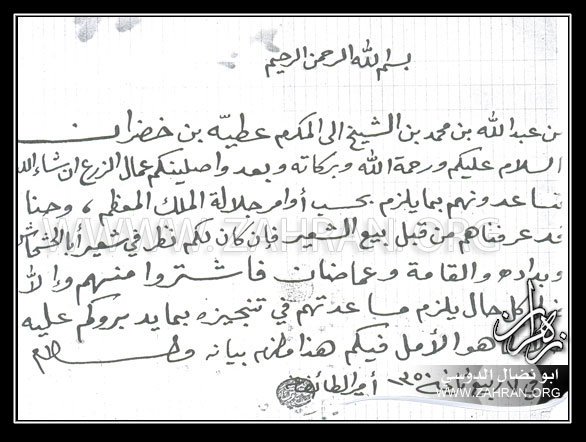 بسم الله الرحمن الرحيم
من عبد الله بن محمد بن الشيخ الى المكرم عطيه بن خضران
السلام عليكم ورحمة الله وبركاته وبعد واصلينكم عمال الزرع ان شاء الله
تساعدونهم بما يلزم بحسب أوامر جلالة الملك المعظم، وحنا
قد عرفناهم من قبل بيع الشعير فان كان لكم نظر في شعير أبا
والقامة وعماضان فاشتروا منهم والا
كل حال يلزم مساعدتهم في تنجيزه بما يدبروكم عليه
هو الأمل فيكم هذا ما لزم بيانه
أمير الطائف
WWW.ZAHRAN.ORG
زهران
ابو نضال الدوسي
WWW.ZAHRAN.ORG